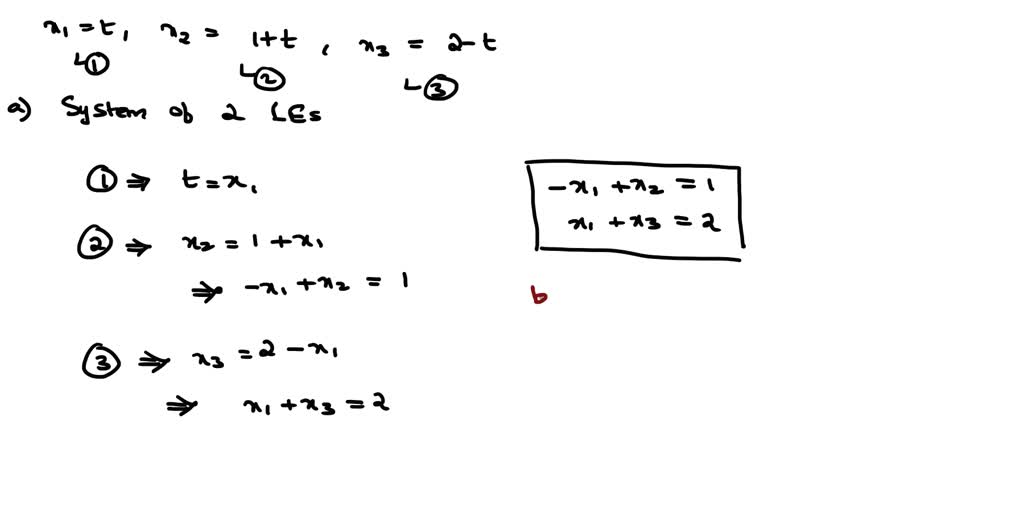 x₁ = t, x₂ = 1+t, x₃ = 2-t
↳① ↳② ↳③
a) System of 2 LEs
① ⇒ t = x₁
② ⇒ x₂ = 1 + x₁
⇒ -x₁ + x₂ = 1
③ ⇒ x₃ = 2 - x₁
⇒ x₁ + x₃ = 2
-x₁ + x₂ = 1
x₁ + x₃ = 2
b